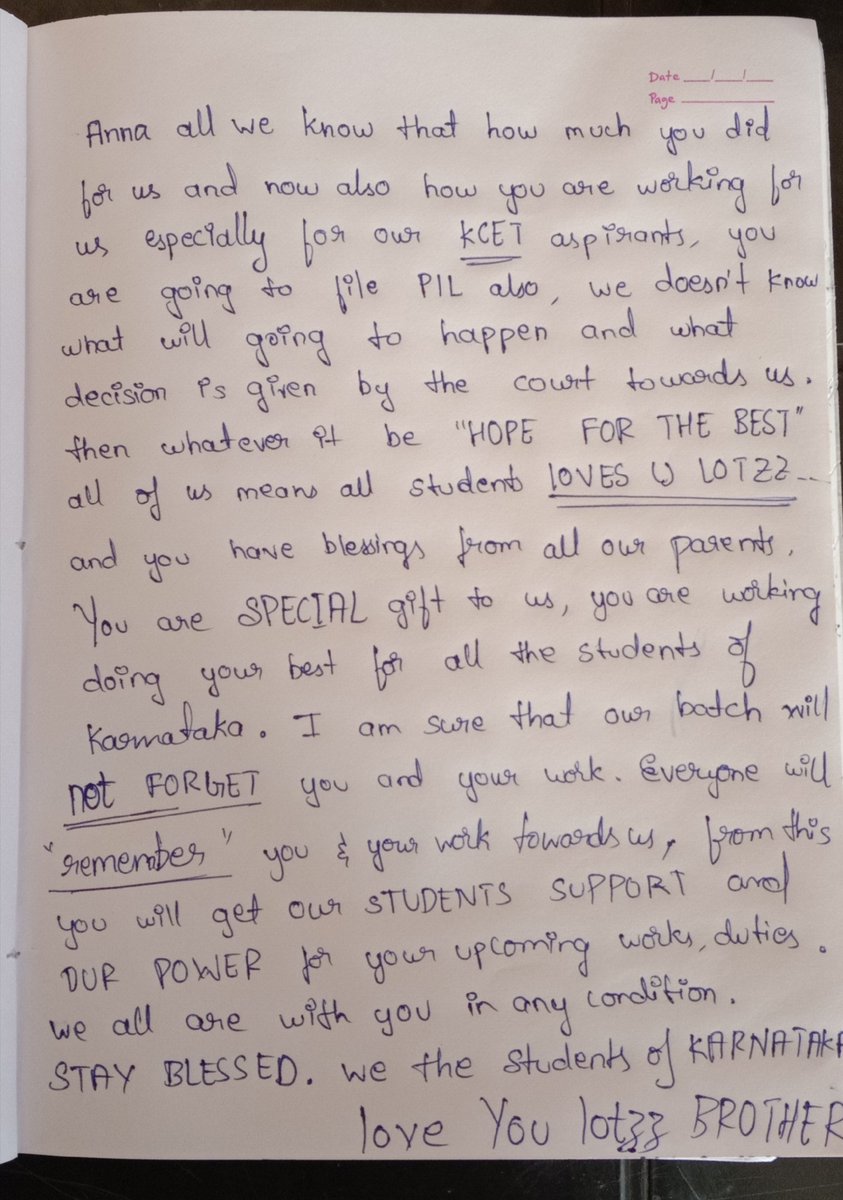 Date ___/___/___
Page ___________
Anna all we know that how much you did
for us and now also how you are working for
us especially for our KCET aspirants, you
are going to file PIL also, we doesn't know
what will going to happen and what
decision is given by the court towards us.
then whatever it be "HOPE FOR THE BEST"
all of us means all students LOVES U LOTZZ...
and you have blessings from all our parents.
You are SPECIAL gift to us, you are working
doing your best for all the students of
Karnataka. I am sure that our batch will
not FORGET you and your work. Everyone will
"remember" you & your work towards us, from this
you will get our STUDENTS SUPPORT and
OUR POWER for your upcoming works, duties.
we all are with you in any condition.
STAY BLESSED. We the students of KARNATAKA
love You lotzz BROTHER